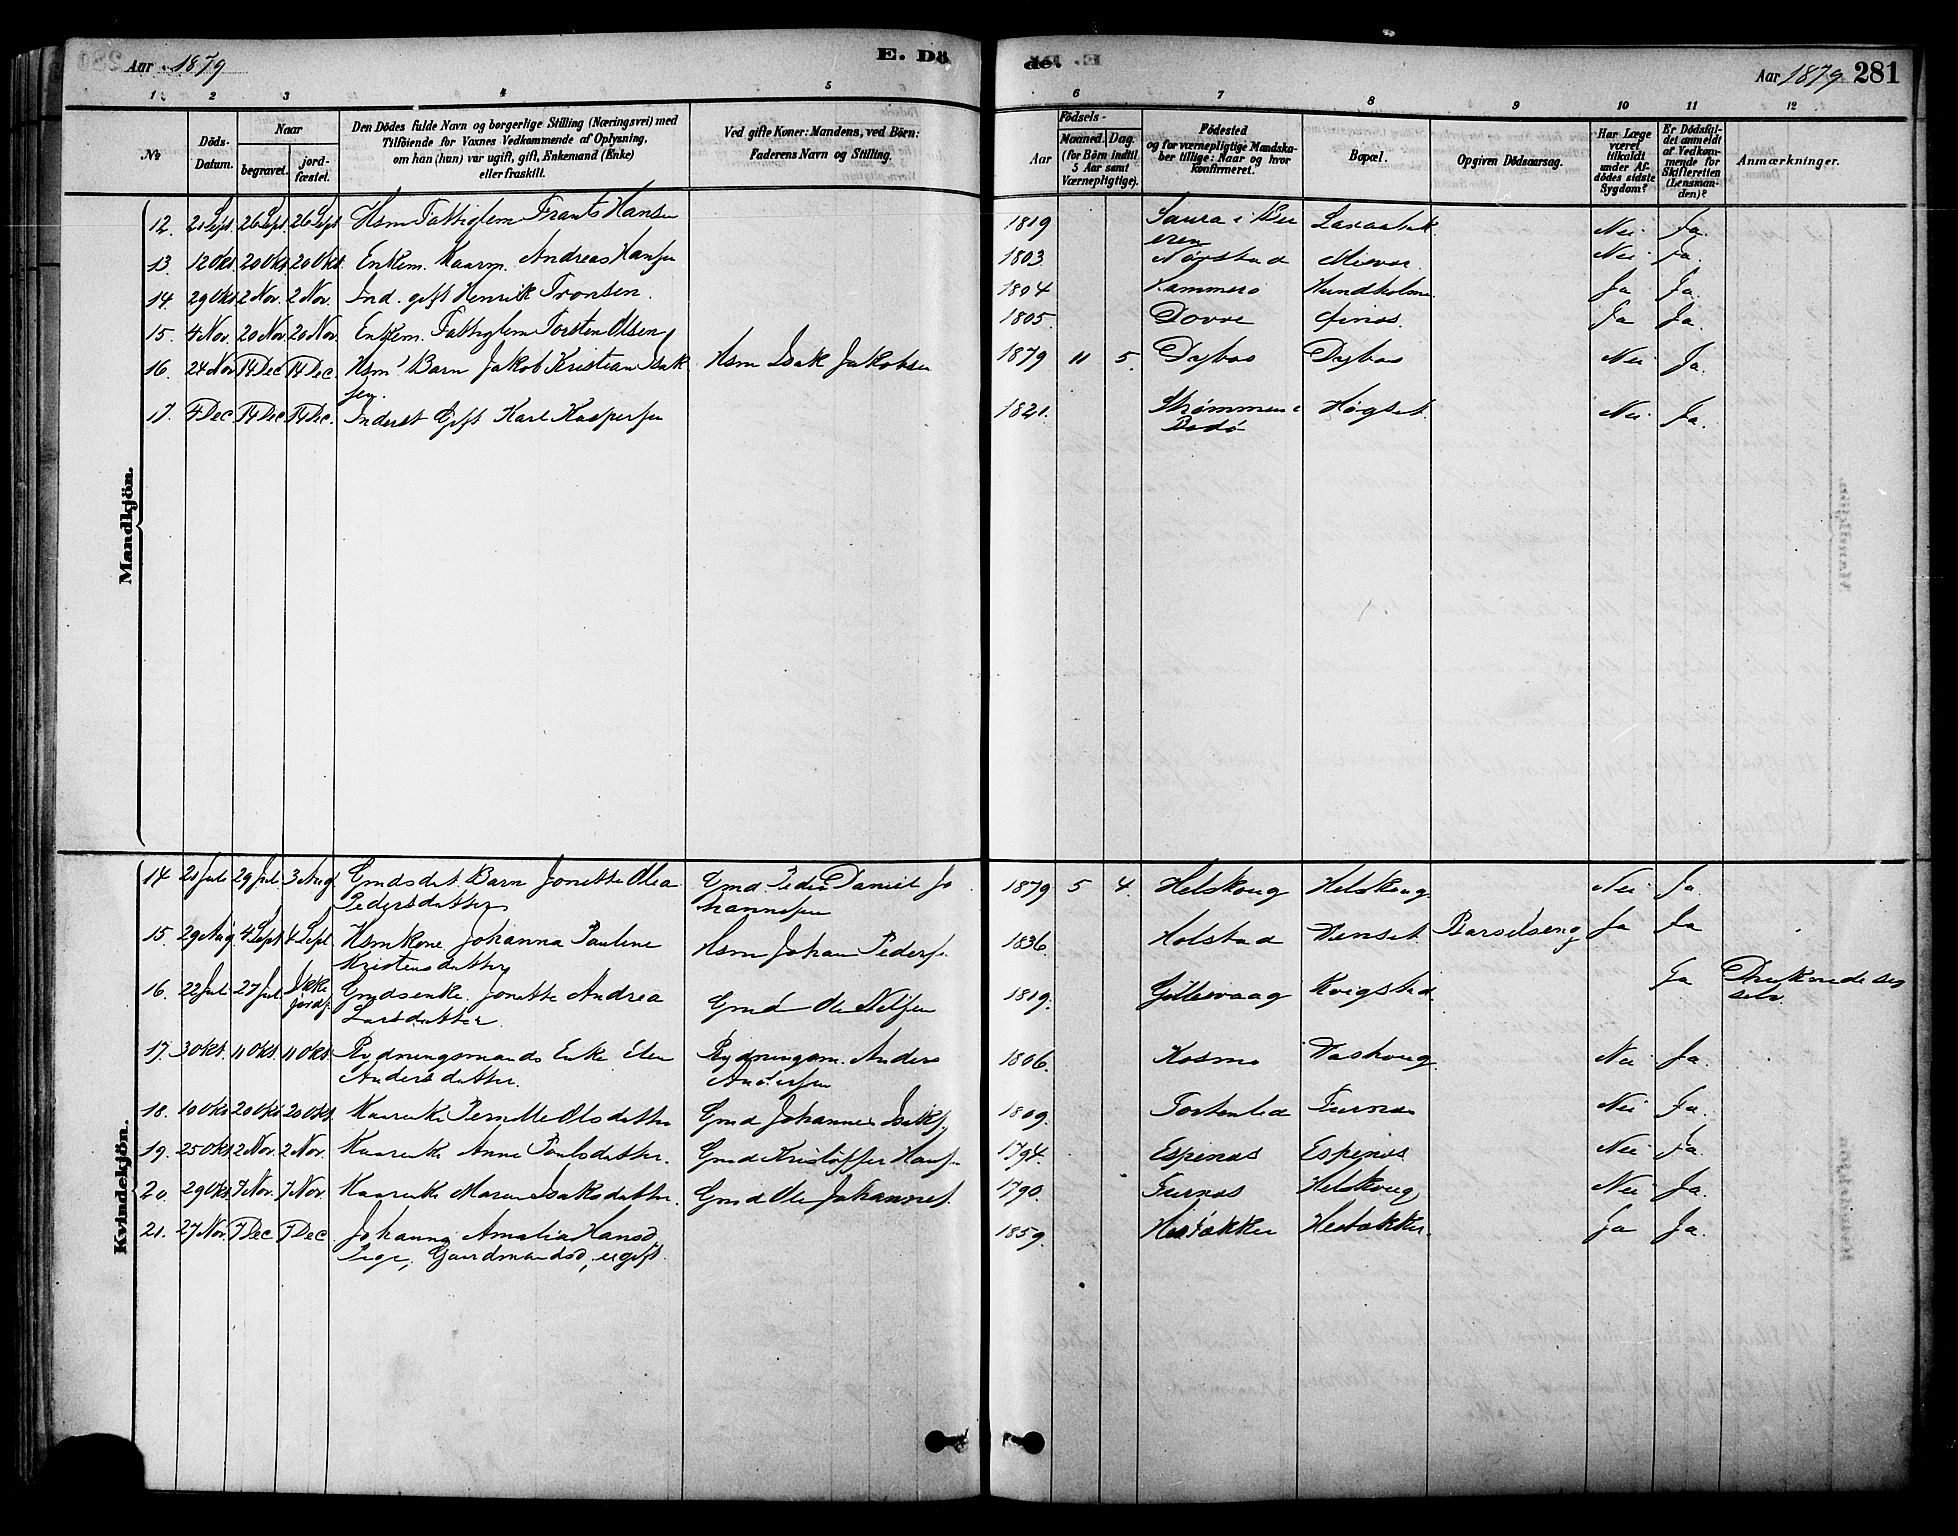 Aar 1879
E. Dö
de.
Aar 1879 281
1 2 3 4 5 6 7 8 9 10 11 12
No
Döds-Datum.
Naar
begravet.
jord-fæstet.
Den Dödes fulde Navn og borgerlige Stilling (Næringsvei) med
Tilföiende for Voxnes Vedkommende af Oplysning,
om han (hun) var ugift, gift, Enkemand (Enke)
eller fraskilt.
Ved gifte Koner: Mandens, ved Börn:
Faderens Navn og Stilling.
Födsels-
Aar
Maaned. Dag.
(for Börn indtil
5 Aar samt
Værnepligtige).
Födested
og for værnepligtige Mandska-
ber tillige: Naar og hvor
konfirmeret.
Bopæl.
Opgiven Dödsaarsag.
Har Læge
været
tilkaldt
under Af-
dödes sidste
Sygdom?
Er Dödsfal-
det anmeldt
af Vedkom-
mende for
Skifteretten
(Lensman-
den)?
Anmærkninger.
Mandkjön.
12. 21 Sept 26 Sept 26 Sept Hsm Fattiglem Frants Hansen 1819 Saura i Nei Ja.
13. 12 Okt 20 Okt 20 Okt. Enkem. Kaarm. Andreas Hansen 1803. Nørstad Misvær. Nei Ja.
14. 29 Okt 2 Nov. 2 Nov. Ind. gift Henrik Tronsen. 1804 Hammerø Hundholmen Ja Ja.
15. 4 Nov. 20 Nov. 20 Nov. Enkem. Fattiglem Torsten Olsen 1805. Dovre Finès. Ja Ja.
16. 24 Nov 14 Dec 14 Dec Hsm' Barn Jakob Kristian Isak Hsm Isak Jakobsen 1879 11 5. Dybos Dybos Nei Ja.
sen.
17. 4 Dec 14 Dec 14 Dec. Inderst Gift Karl Kaspersen 1821. Strømmen i Høgset Nei Ja.
Bodø
Kvindekjön.
14 21 Jul 29 Jul 3 Aug Gmdsdat. Barn Jonette Olea Gmd. Peder Daniel Jo 1879 5 4. Helskoug Helskoug Nei Ja.
Pedersdatter hannesen
15. 29 Aug. 4 Sept 4 Sept Hsmkone Johanna Pauline Hsm Johan Peders. 1836. Holstad Venset. Barselseng Ja Ja
Kristensdatter
16. 22 Jul 27 Jul Ikke Gmdsenke. Jonette Andrea Gmd Ole Nilsen 1819. Gillesvaag Kvigstad Ja Druknede sig
jordf. Larsdatter selv.
17. 3 Okt. 11 Okt. 11 Okt. Rydningsmands Enke Elen Rydningsm. Anders 1806. Kosmo Vaskoug Nei Ja.
Andersdatter. Andersen
18. 10 Okt 20 Okt 20 Okt. Kaarenke Pernille Olsdatter Gmd Johannes Isaks. 1809. Tortenlid Furnes Nei Ja.
19. 25 Okt 2 Nov. 2 Nov. Kaarenke Anne Poulsdatter. Gmd Kristoffer Hansen 1794. Espenes Espenes Nei Ja.
20. 29 Okt 7 Nov. 7 Nov. Kaarenke Maren Isaksdatter. Gmd Ole Johannes. 1790. Furnes Helskoug Nei Ja.
21. 27 Nov. 7 Dec 7 Dec Johanna Amalia Hansd 1859. Hestakker Hestakker. Ja Ja.
Pige, Gaardmandsd, ugift.